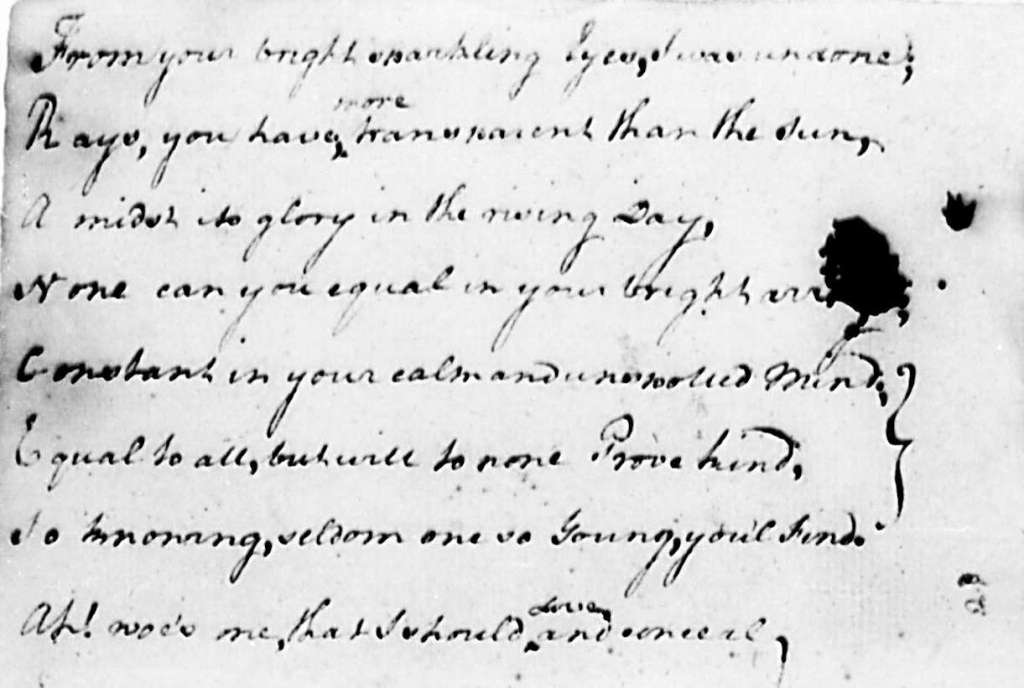 From your bright sparkling Eyes, I was undone;
Rays, you have, more transparent than the Sun,
A midst its glory in the rising Day,
None can you equal in your bright
Constant in your calm and unspotted Mind;
Equal to all, but will to none Prove kind,
So knowing, seldom one so Young, you'l Find.
Ah! woe's me, that I should Love and conceal,